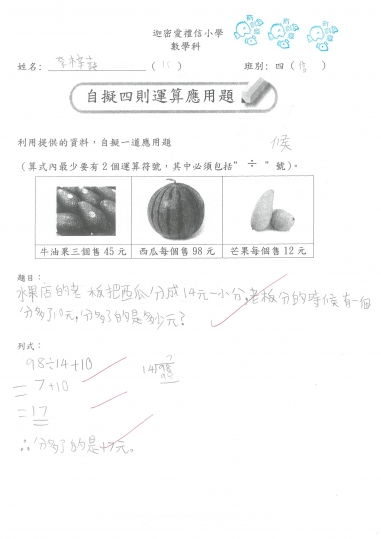 迦密愛禮信小學
數學科
姓名: (11) 班別:四(信)
自擬四則運算應用題
利用提供的資料,自擬一道應用題 候
(算式內最少要有2個運算符號,其中必須包括"÷"號)。
牛油果三個售45元 西瓜每個售98元 芒果每個售12元
題目:
水果店的老板把西瓜分成14元一小分,老板分的時候有一個
分多了10元,分多了的是多少元?
列式:
98÷14+10
=7+10
=17
7
14 98
98
∴分多了的是17元。